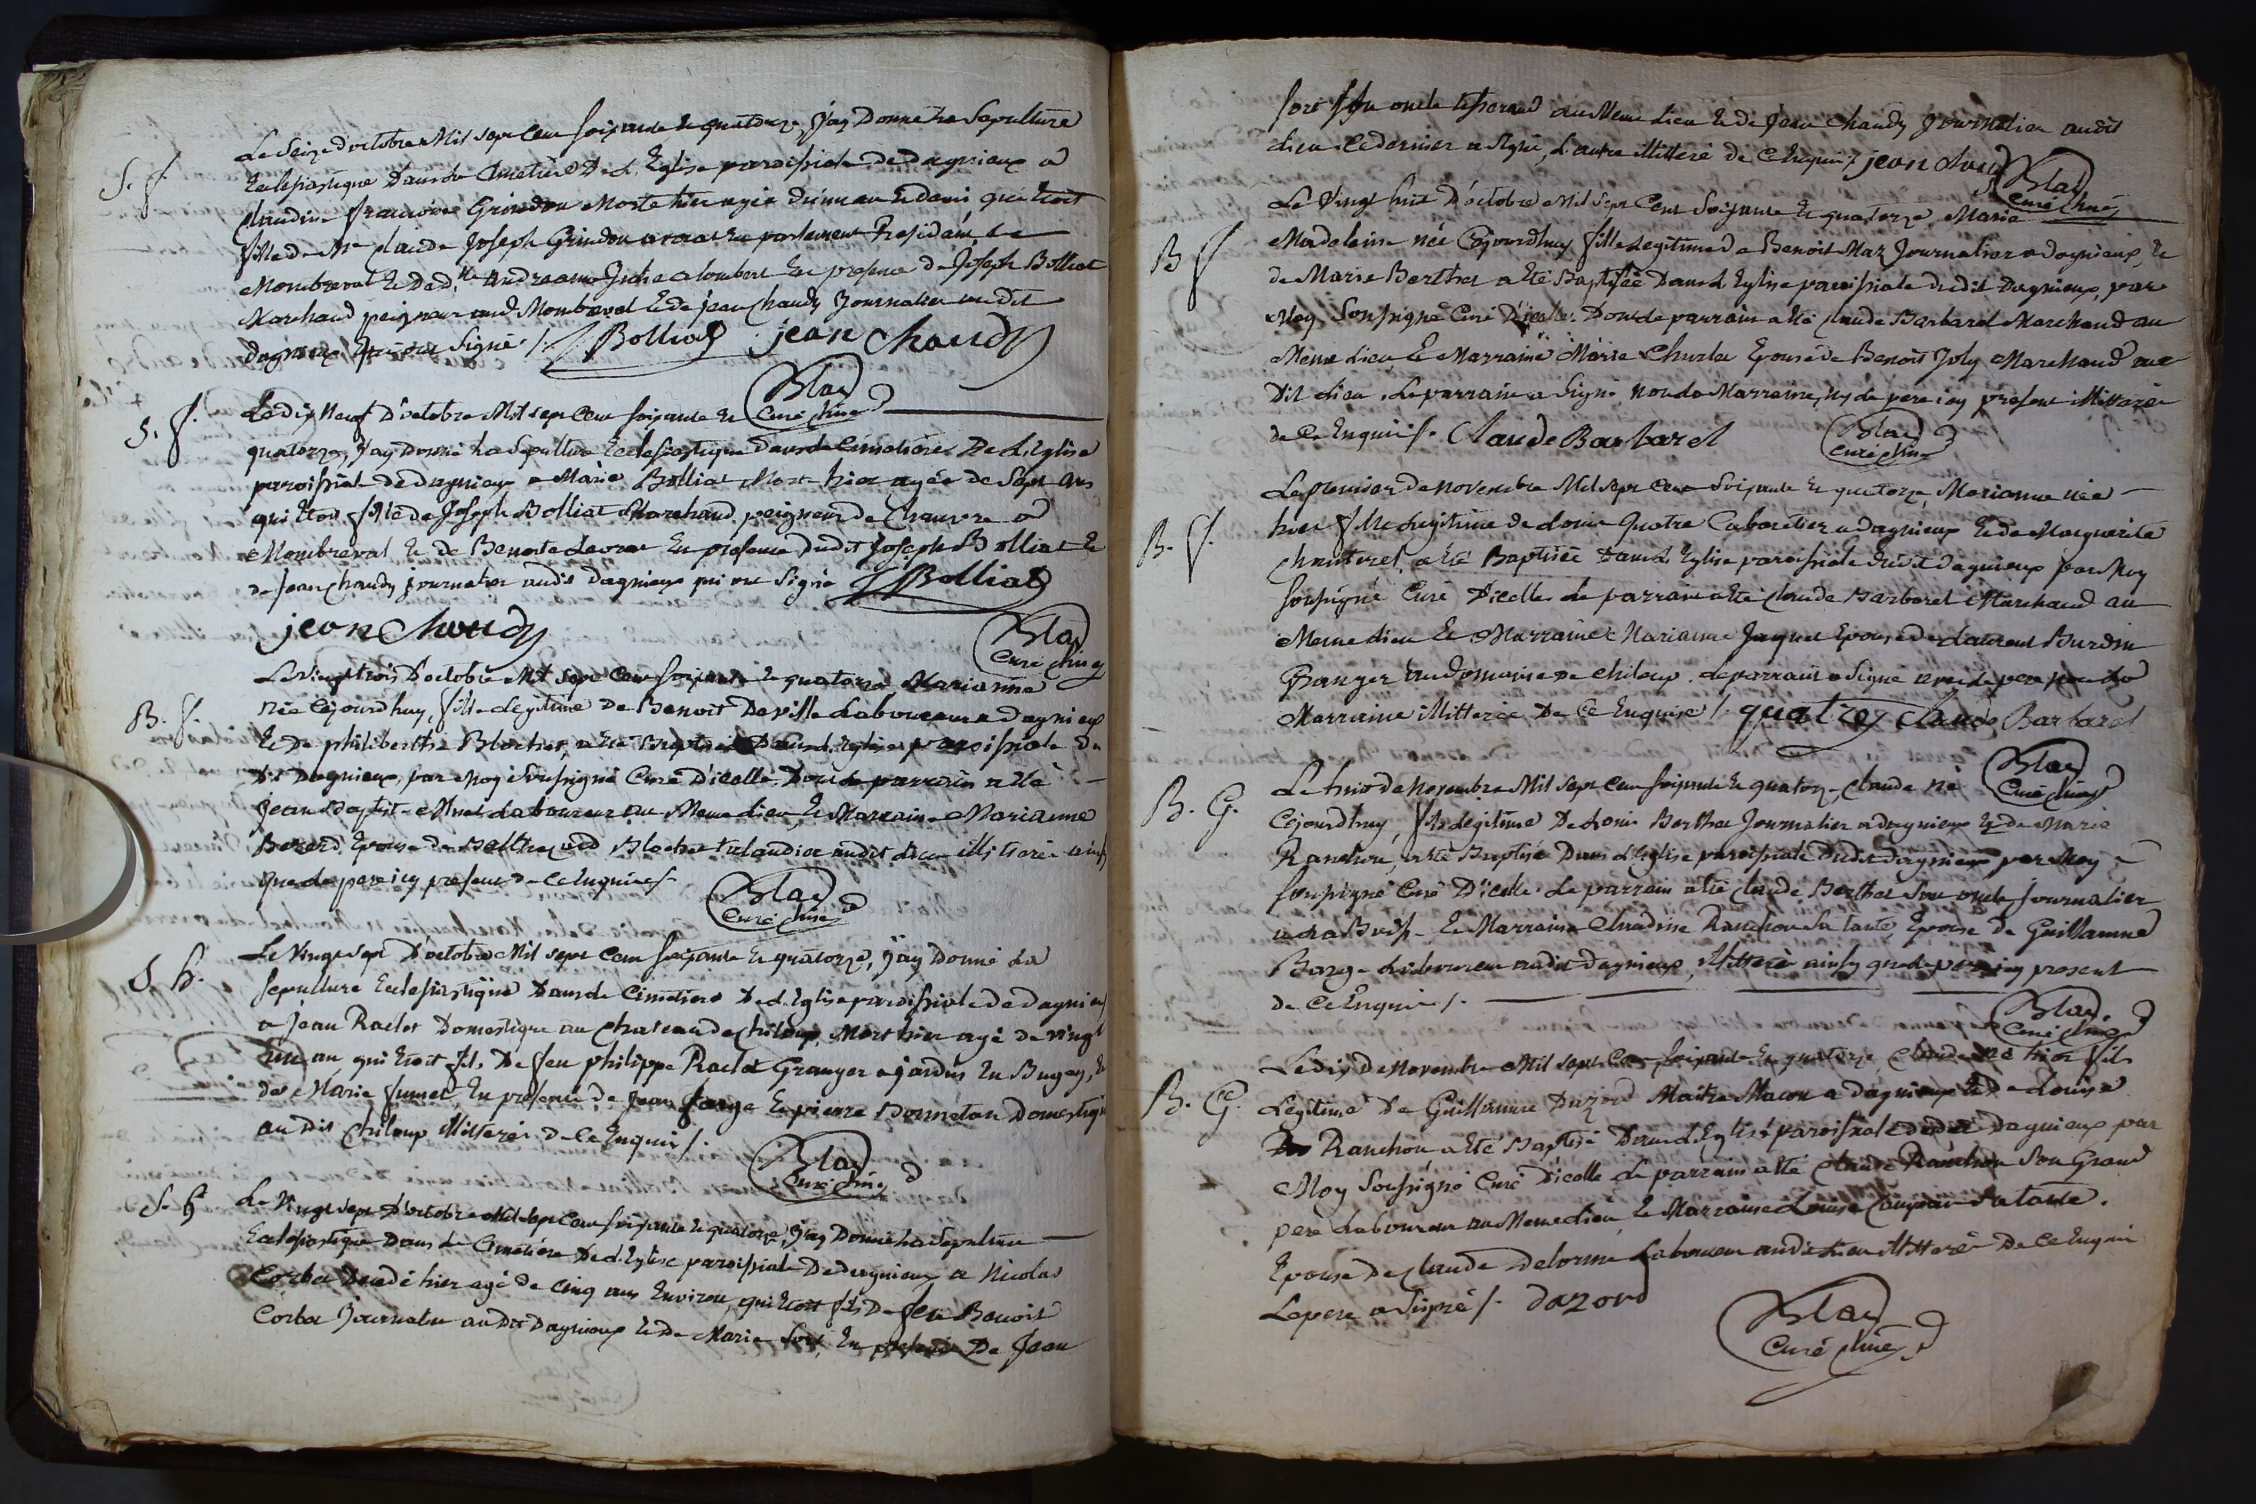 S. f.
Le Seize d'octobre Mil sept cent soixante et quatorze, j'ay Donné La Sepulture
Eclesiastique Dans le Cimetiere De L'Eglise paroissiale de Dagnieux a
Claudine francoise Grindon Morte hier agée d'un an et demi qui Etoit
fille de Mre claude Joseph Grindon avocat En parlement Residant a
Montreval Et de d.lle En presence de Joseph Bolliat
Marchand peigneur aud Montreval Et de jean Chaudy Journalier audit
Dagnieux qui ont Signé /. J Bolliat jean Chaudy
Blad Curé
S. f.
Le dix Neuf D'octobre Mil sept cent soixante et
quatorze, J'ay Donné La Sepulture Eclesiastique dans le Cimetiere De L'Eglise
paroissiale de Dagnieux a Marie Bolliat Morte hier agée de Sept ans
qui Etoit fille de Joseph Bolliat Marchand peigneur de Chanvre a
Montreval Et de Benoite En presence Dudit Joseph Bolliat Et
de Jean Chaudy journalier audit Dagnieux qui ont Signé J Bolliat
jean Chaudy
Blad Curé
B. f.
Le vingt trois D'octobre Mil sept cent soixante et quatorze Marianne
Née Cejourd'huy, fille Legitime De Benoit Deville Laboureur a Dagnieux
Et De philiberthe Blochet, a été Baptisée Dans L'Eglise paroissiale du
Dit Dagnieux, par Moy Soussigné Curé D'icelle. Dont Le parrain a été
Jean Baptiste Laboureur au Meme Lieu, Et Marraine Marianne
Epouse de Balthazard Blochet audit Lieu illiterés ainsi
que Le pere icy present de Ce Enquis /.
Blad Curé
S. h.
Le Vingt sept D'octobre Mil sept cent soixante et quatorze, J'ay Donné La
Sepulture Eclesiastique Dans le Cimetiere De L'Eglise paroissiale de Dagnieux
a Jean Raclet Domestique au Chateau de Chiloup Mort hier agé de vingt
un an qui Etoit fils De feu philippe Raclet Granger a jardin En Bugey, Et
de Marie En presence de Jean farge Et pierre Bonnetan Domestiques
audit Chiloup illiterés de Ce Enquis /.
Blad Curé
S. h
Le Vingt sept D'octobre Mil sept cent soixante et quatorze, J'ay Donné La Sepulture
Eclesiastique Dans le Cimetiere De L'Eglise paroissiale De Dagnieux a Nicolas
Corbet hier agé de Cinq ans Environ, qui Etoit fils De feu Benoit
Corbet Journalier audit Dagnieux Et De Marie fort, En presence De Jean
fort Son oncle au Meme Lieu Et de Jean Chaudy Journalier audit
Lieu. Le dernier a Signé, L'autre illiteré de Ce Enquis /. jean chaudy
Blad Curé
B f
Le Vingt huit D'octobre Mil sept Cent Soixante Et quatorze, Marie
Madelaine née Cejourdhuy fille Legitime de Benoit Maz Journalier a Dagnieux, Et
de Marie Berthet a été Baptisée Dans L'Eglise paroissiale dudit Dagnieux, par
Moy Soussigné Curé D'icelle. Dont Le parrain a été Claude Barbaret Marchand au
Meme Lieu Et Marraine Marie Epouse de Benoit Joly Marchand au
Dit Lieu, Le parrain a Signé, Non La Marraine, Ny Le pere icy present illiterés
de Ce Enquis /. Claude Barbaret
Blad Curé
B. f.
Le premier de Novembre Mil sept cent Soixante Et quatorze, Marianne née
hier fille Legitime de Louis Quatre Cabaretier a Dagnieux Et de Marguerite
a été Baptisée Dans L'Eglise paroissiale dudit Dagnieux par Moy
Soussigné Curé D'icelle. Le parrain a été Claude Barbaret Marchand au
Meme Lieu Et Marraine Marianne Jaquet Epouse de Laurent Burdin
Granger au domaine de Chiloup. Le parrain a Signé avec Le pere Non La
Marraine illiterée De Ce Enquise /. quatre Claude Barbaret
Blad Curé
B. G.
Le trois de Novembre Mil sept cent soixante Et quatorze, Claude né
Cejourdhuy, fils Legitime De Louis Berthet Journalier a Dagnieux Et de Marie
Ranchon, a été Baptisé Dans L'Eglise paroissiale Dudit Dagnieux par Moy
Soussigné Curé D'icelle Le parrain a été Claude Berthet Son oncle journalier
a La Et Marraine Claudine Ranchon Sa tante Epouse de Guillaume
Barge Laboureur audit Dagnieux, illiterés ainsy que Le pere icy present
de Ce Enquis /.
Blad Curé
B. G.
Le dix De Novembre Mil sept Cent soixante Et quatorze, Claude né hier fils
Legitime De Guillaume Dazord Maitre Macon a Dagnieux Et de Louise
Ranchon a été Baptisé Dans L'Eglise paroissiale dudit Dagnieux par
Moy Soussigné Curé D'icelle Le parrain a été Claude Ranchon Son Grand
pere Laboureur au Meme Lieu Et Marraine Louise Sa tante.
Epouse De Claude Delorme Laboureur audit Lieu illiterés De Ce Enquis
Le pere a Signé /. dazord
Blad Curé